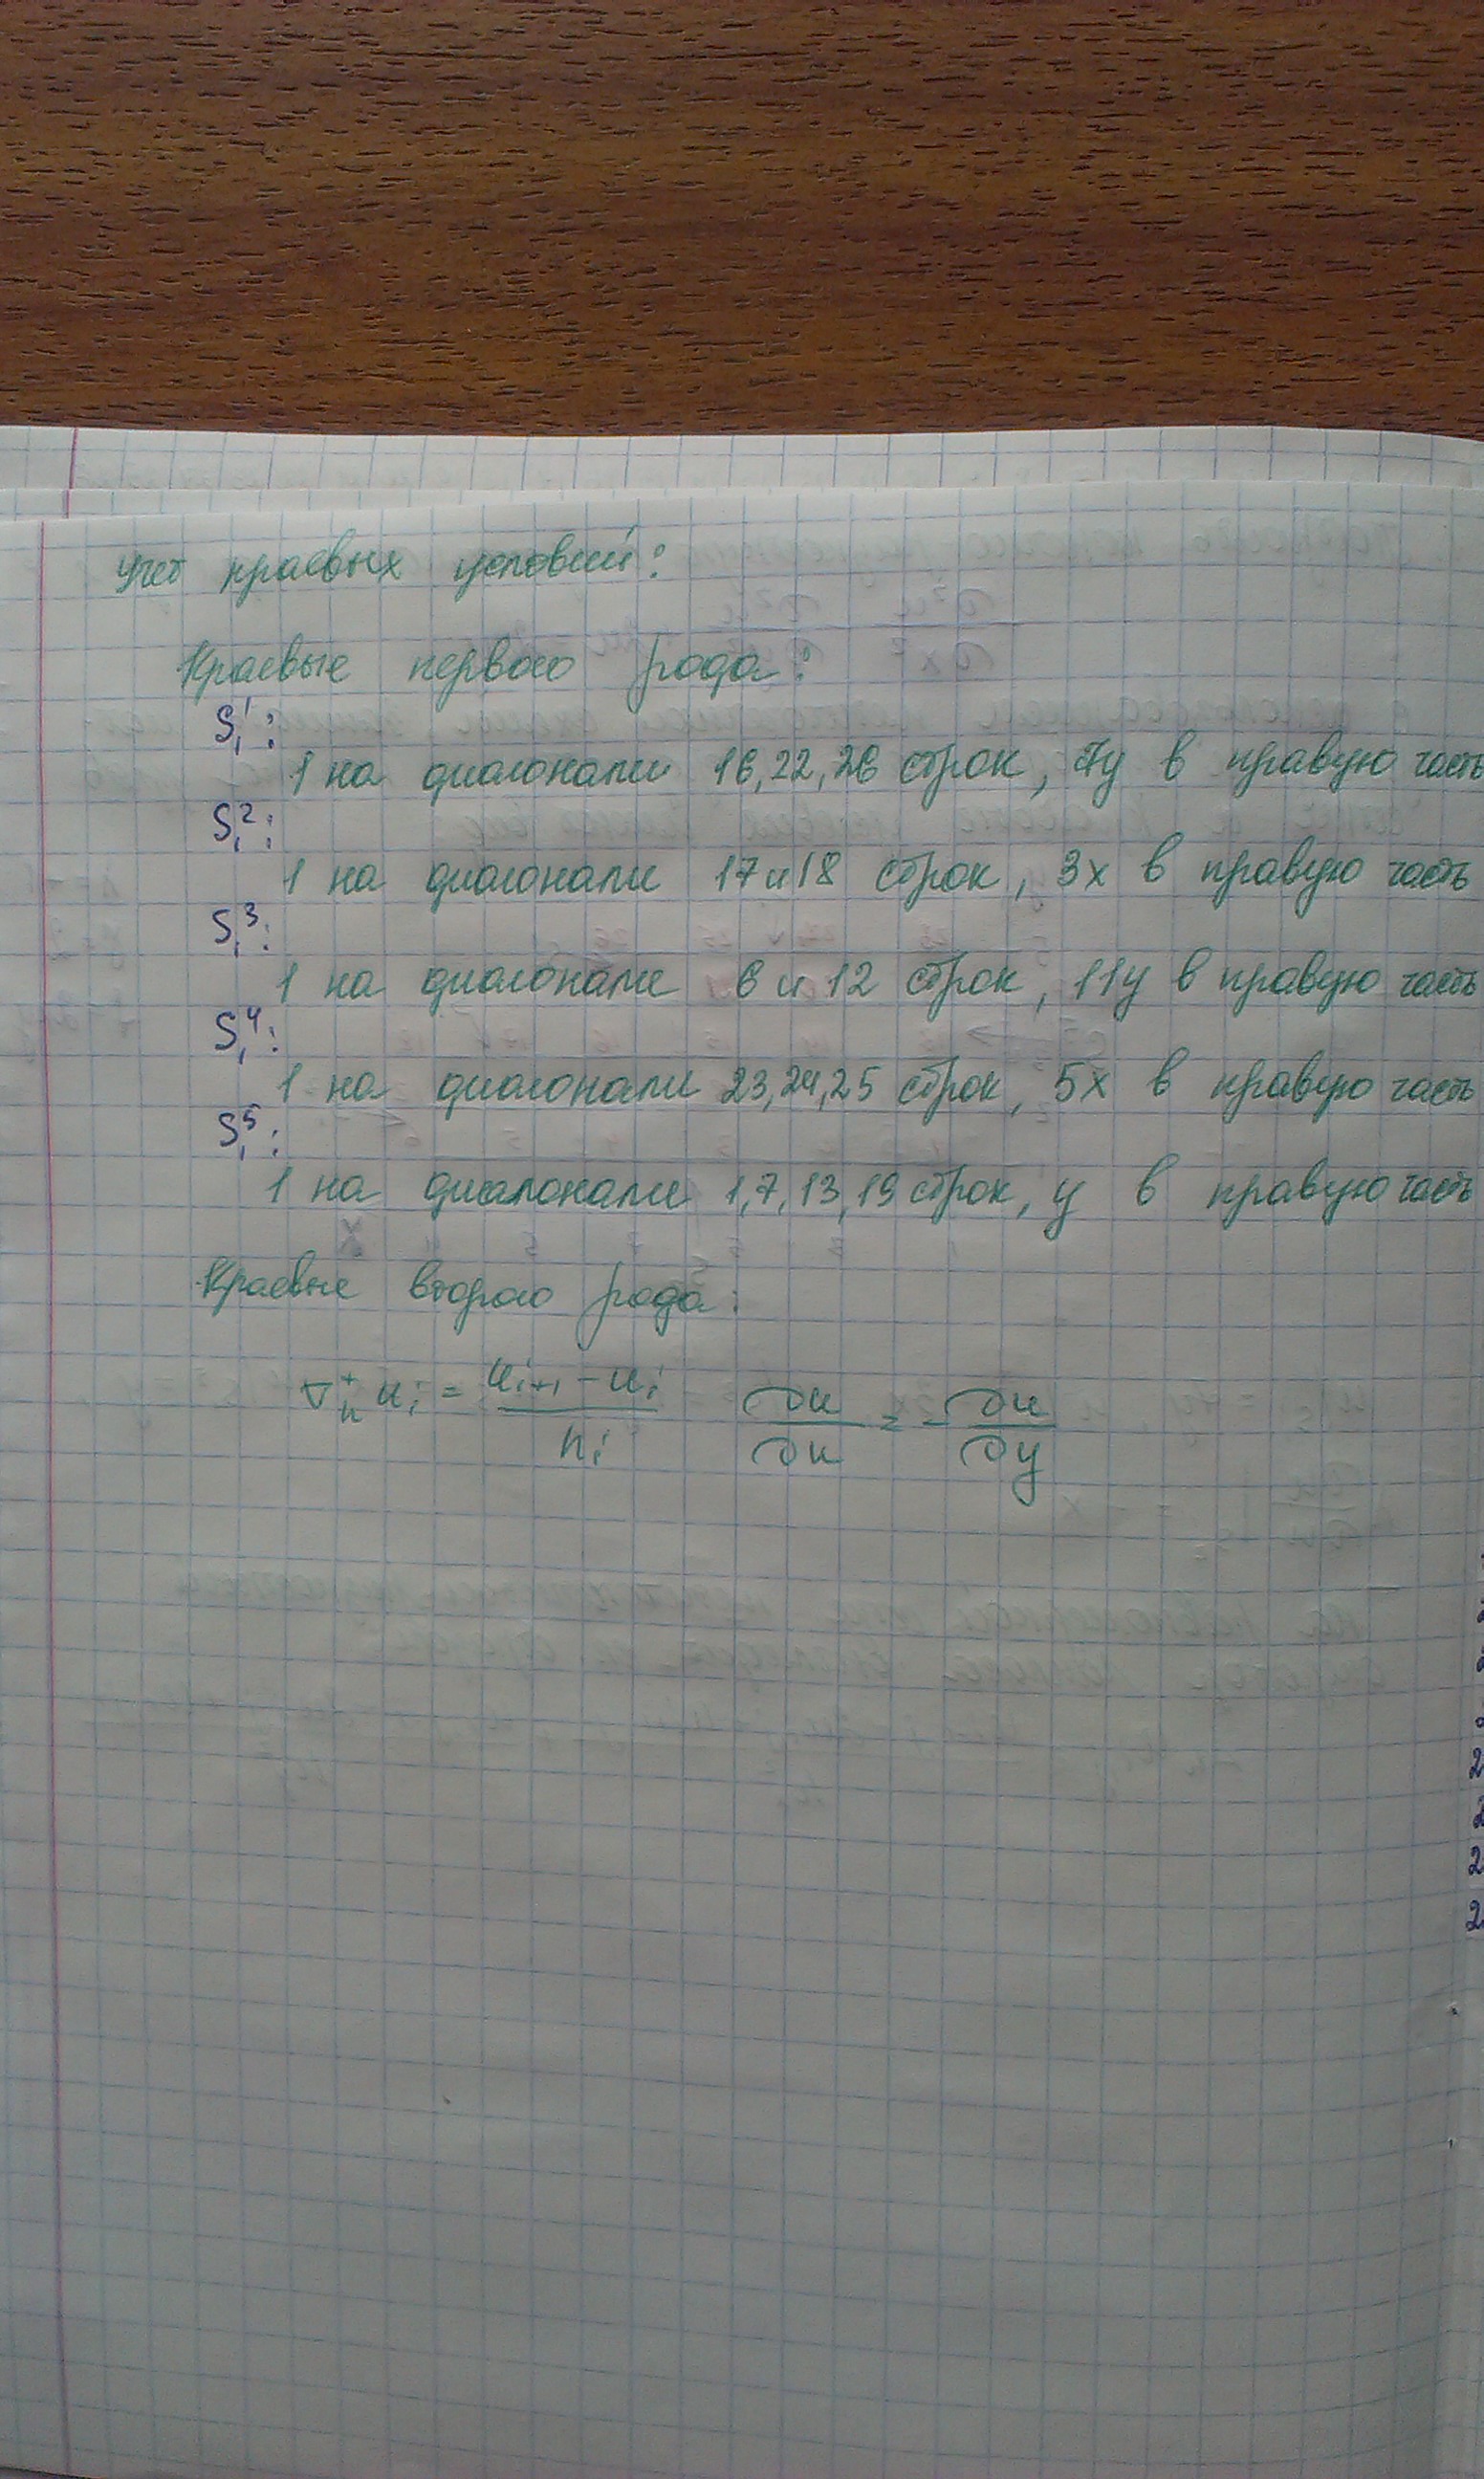 Учет краевых условий:
Краевые первого рода:
S₁¹:
1 на диагонали 16, 22, 26 строк, 7y в правую часть
S₁²:
1 на диагонали 17 и 18 строк, 3x в правую часть
S₁³:
1 на диагонали 6 и 12 строк, 11y в правую часть
S₁⁴:
1 на диагонали 23, 24, 25 строк, 5x в правую часть
S₁⁵:
1 на диагонали 1, 7, 13, 19 строк, y в правую часть
Краевые второго рода:
∇ₕ⁺ uᵢ = (uᵢ₊₁ - uᵢ) / hᵢ   ∂u/∂n = - ∂u/∂y